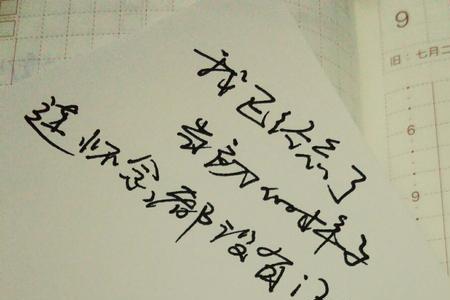 我已经忘了
当初的样子
连怀念都没有
9
旧：七月二
6
9